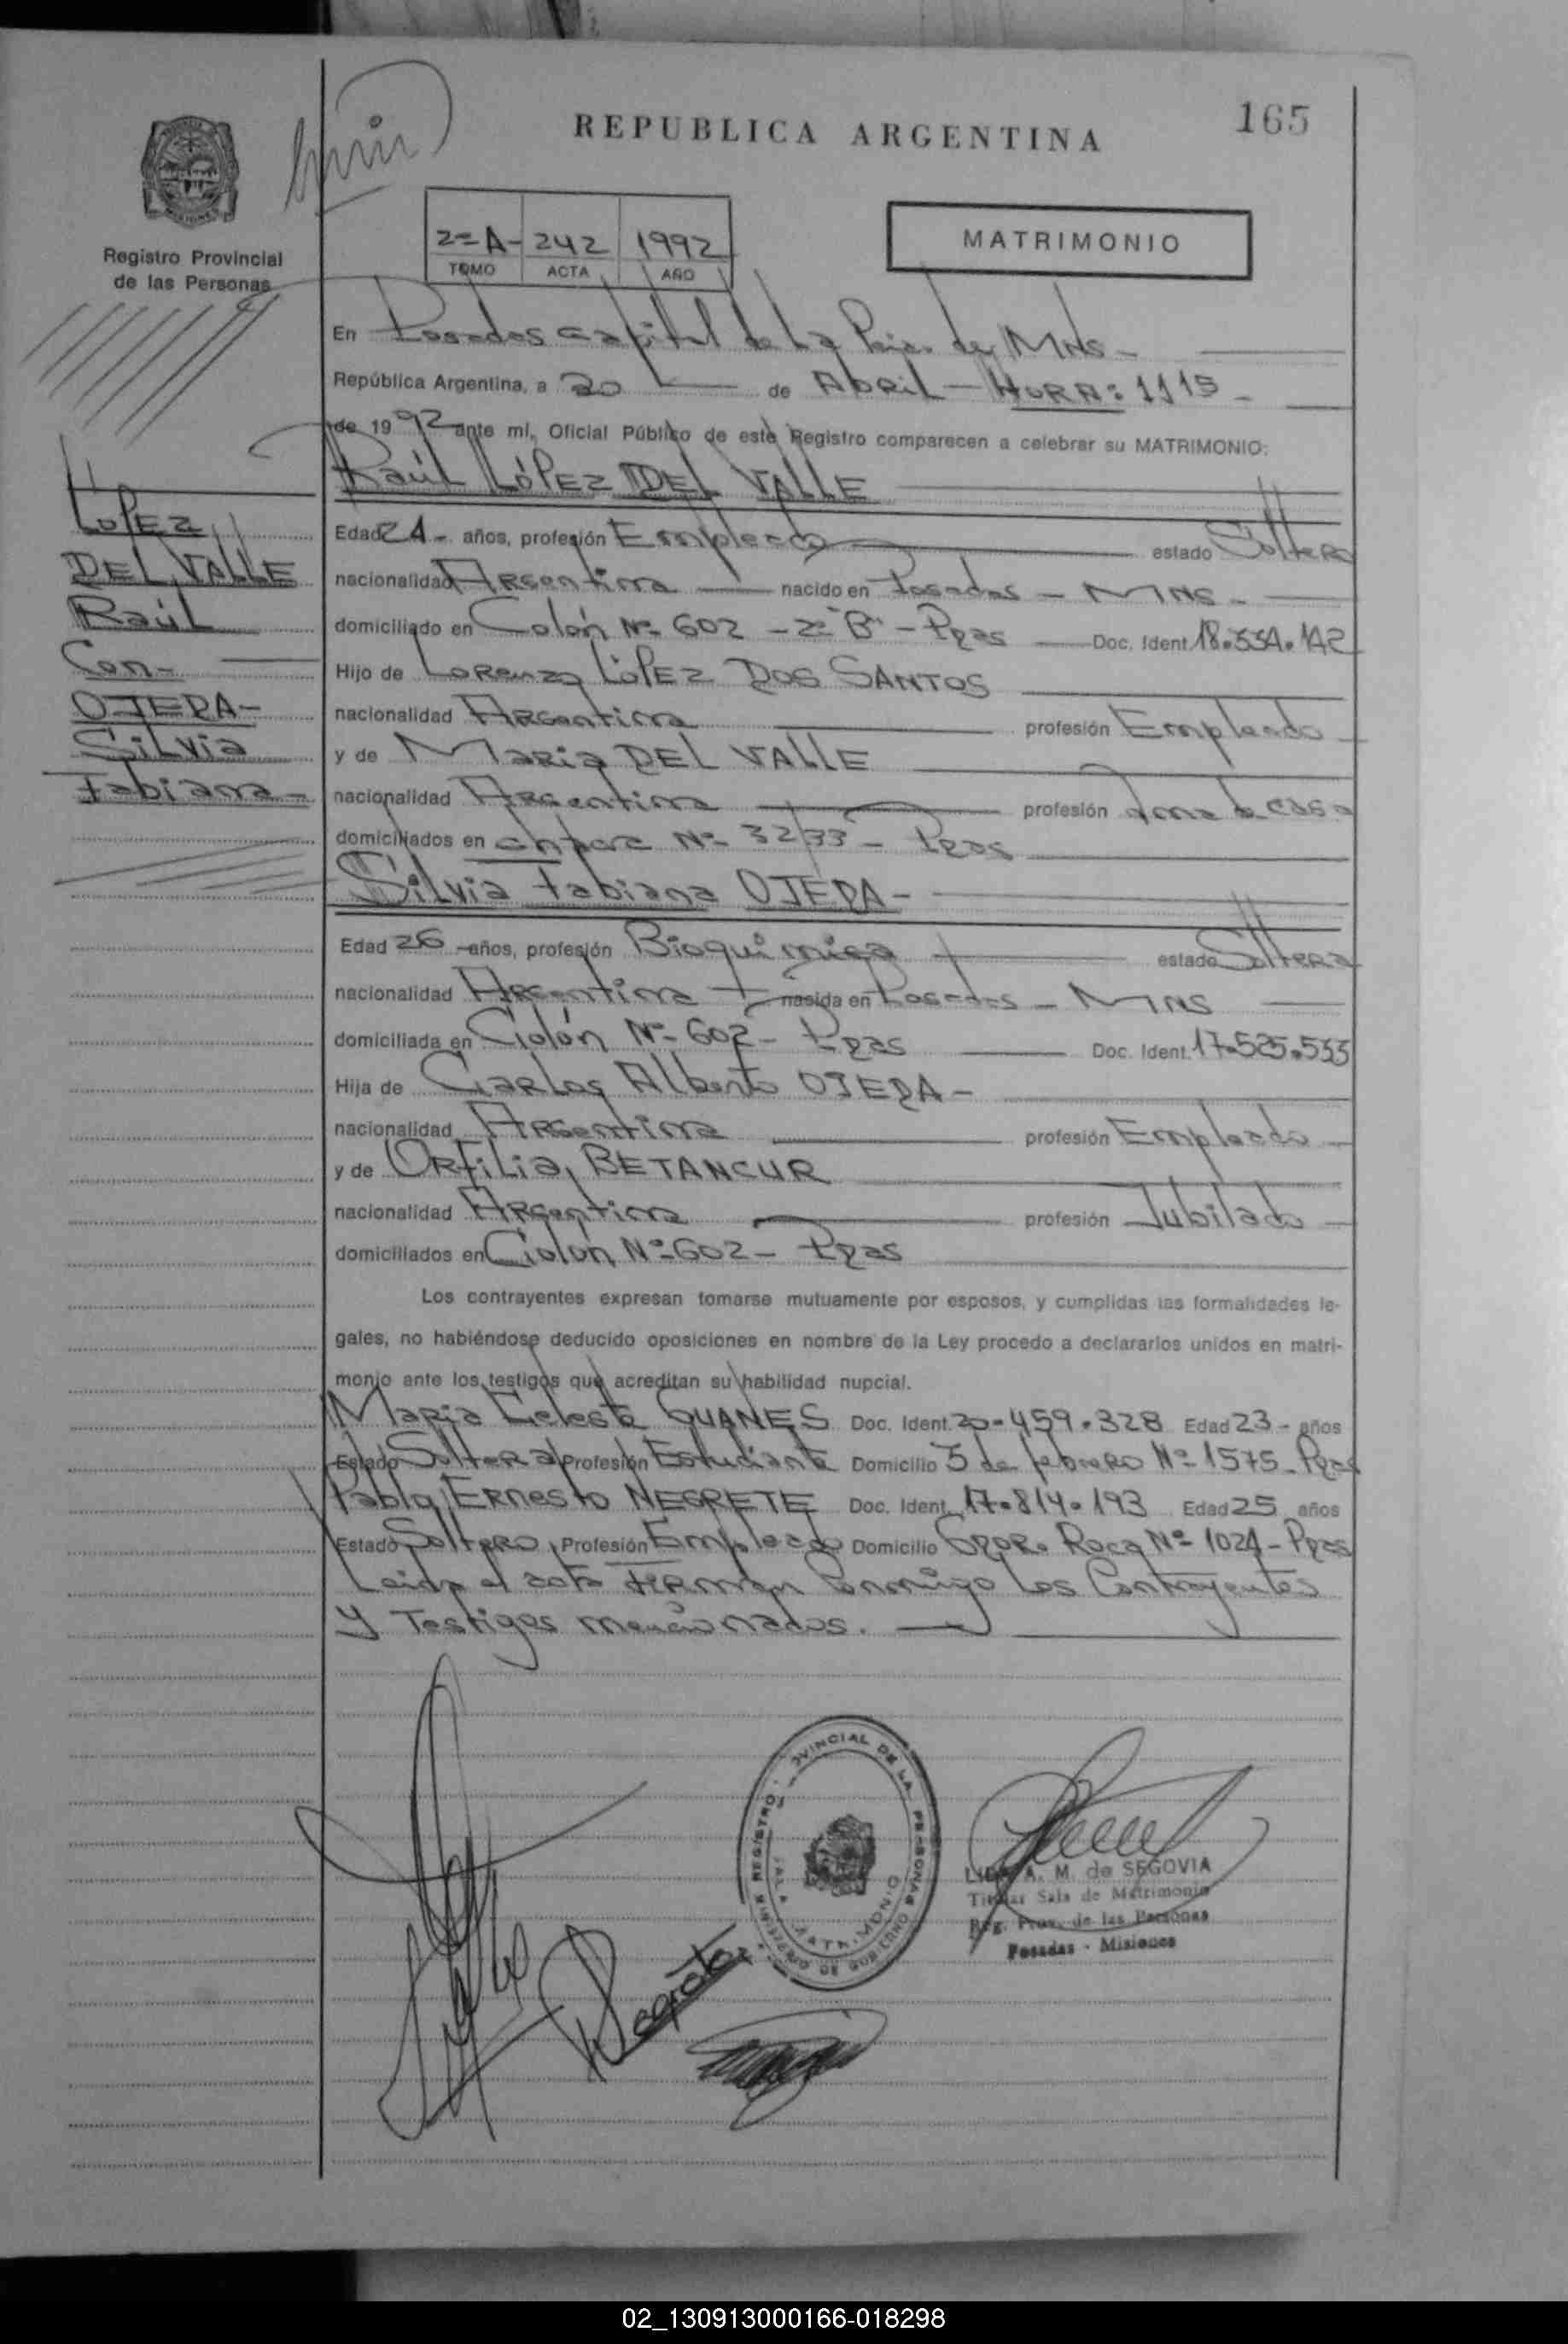 165
REPUBLICA ARGENTINA
Registro Provincial
de las Personas
2=A- 242 1992
TOMO ACTA AÑO
MATRIMONIO
En Posadas Capital de La Pcia. de Mns -
República Argentina, a de Abril - HORA: 1115 -
de 1992 ante mí, Oficial Público de este Registro comparecen a celebrar su MATRIMONIO:
Raúl LÓPEZ DEL VALLE
LÓPEZ
DEL VALLE
Raúl
Con-
OJEDA-
Silvia
Fabiana-
Edad 24- años, profesión Empleado estado Soltero
nacionalidad Argentina nacido en Posadas - MNS -
domiciliado en Colón Nº 602 - 2º "B" - Pdas Doc. Ident. 18.534.142
Hijo de Lorenzo LÓPEZ DOS SANTOS
nacionalidad Argentina profesión Empleado -
y de Maria DEL VALLE
nacionalidad Argentina profesión Ama de casa
domiciliados en Nº 32/33 - Pdas
Silvia Fabiana OJEDA-
Edad 26 - años, profesión Bioquimica estado Soltera
nacionalidad Argentina nasida en Posadas - MNS
domiciliada en Colón Nº 602 - Pdas Doc. Ident. 17.525.533
Hija de Carlos Alberto OJEDA-
nacionalidad Argentina profesión Empleado -
y de Orfilia BETANCUR
nacionalidad Argentina profesión Jubilado -
domiciliados en Colón Nº 602 - Pdas
Los contrayentes expresan tomarse mutuamente por esposos, y cumplidas las formalidades le-
gales, no habiéndose deducido oposiciones en nombre de la Ley procedo a declararlos unidos en matri-
monio ante los testigos que acreditan su habilidad nupcial.
Maria Celeste GUANES Doc. Ident. 20.459.328 Edad 23 - años
Estado Soltera Profesión Estudiante Domicilio 3 de febrero Nº 1575 - Pdas
Pablo Ernesto NEGRETE Doc. Ident. 17.814.193 Edad 25 años
Estado Soltero Profesión Empleado Domicilio Gdor. Roca Nº 1024 - Pdas
Leida el acta firman Conmigo Los Contrayentes
y Testigos mencionados.
REGISTRO PROVINCIAL DE LA PERSONAS
MINISTERIO DE GOBIERNO
SALA MATRIMONIO
A. M. de SEGOVIA
Titular Sala de Matrimonio
Reg. Prov. de las Personas
Posadas - Misiones
Negrete
02_130913000166-018298